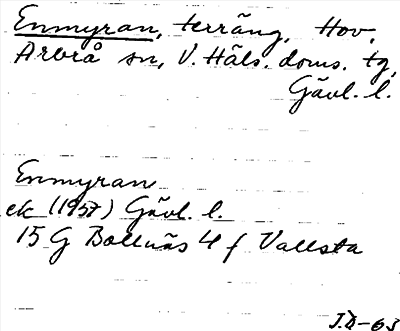 Enmyran, terräng, Hov,
Arbrå sn, V. Häls. doms. tg,
Gävl. l.
Enmyran
ek (1957) Gävl. l.
15 G Bollnäs 4 f Vallsta
J.D-63